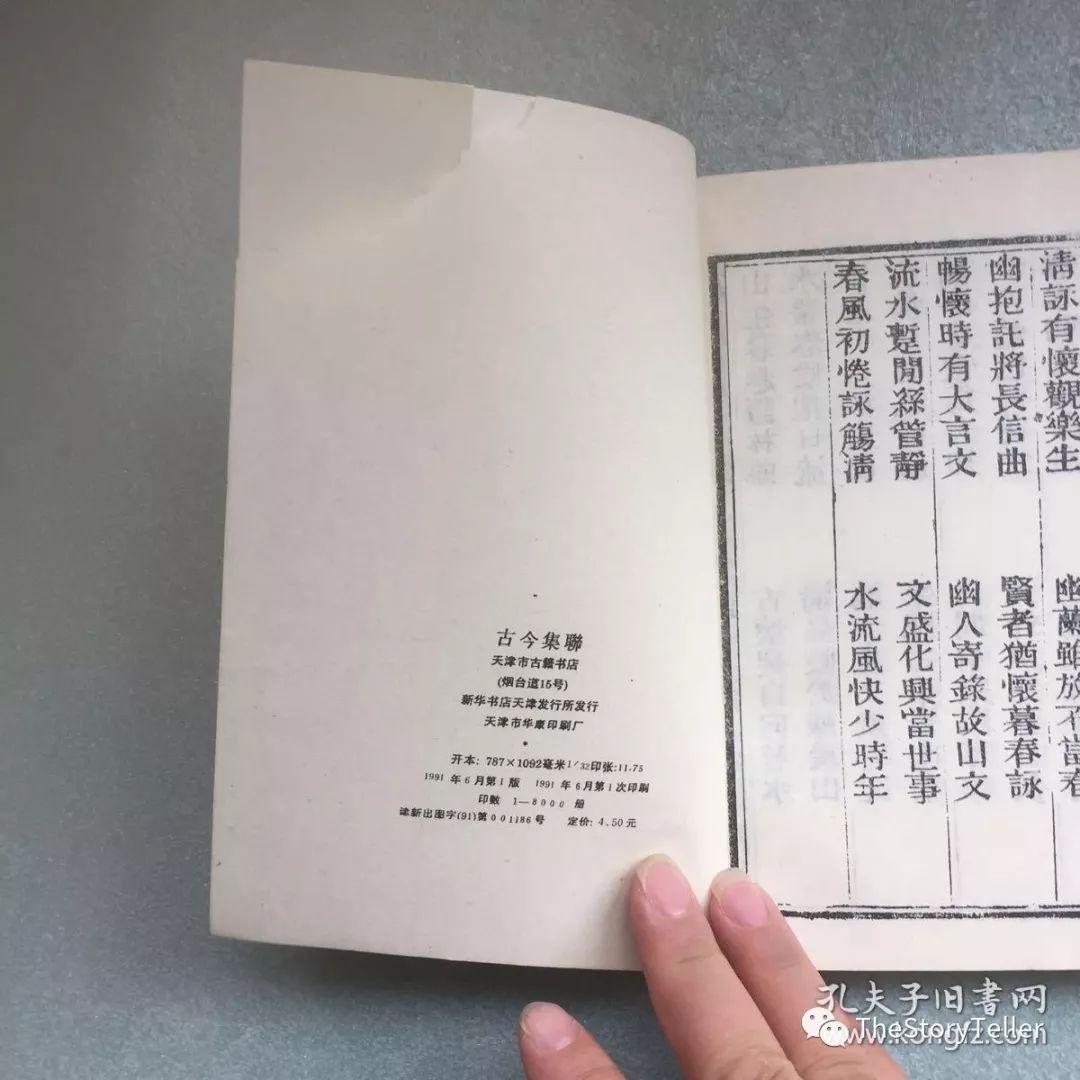 古今集聯
天津市古籍书店
(烟台道15号)
新华书店天津发行所发行
天津市华康印刷厂
开本：787×1092毫米1/32印张:11.75
1991年6月第1版 1991年6月第1次印刷
印数 1—8000 册
津新出图字(91)第001186号 定价：4.50元
清詠有懷觀樂生 幽蘭雖放不當春
幽抱託將長信曲 賢者猶懷暮春詠
暢懷時有大言文 幽人寄錄故山文
流水蹔閒絲管靜 文盛化興當世事
春風初惓詠觴清 水流風快少時年
孔夫子旧书网
TheStoryTeller
www.kongfz.com